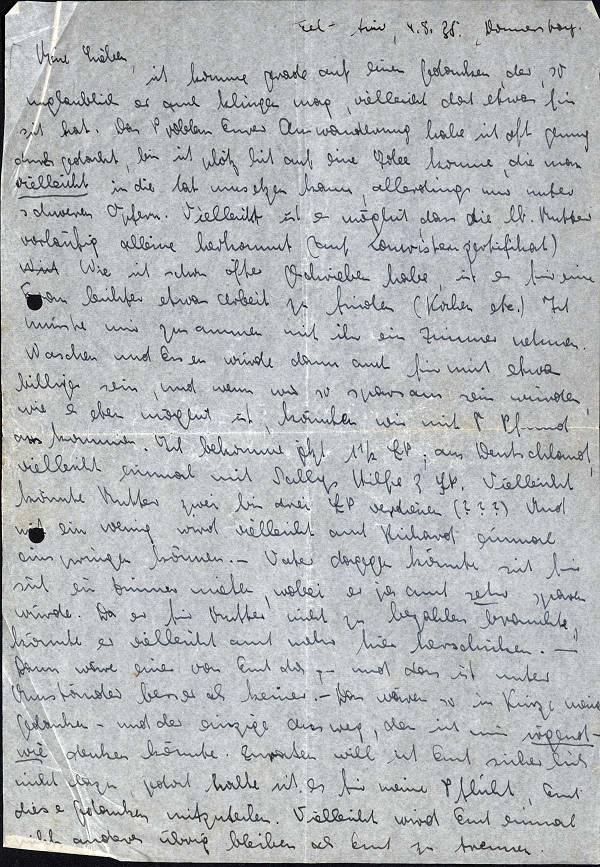 Tel-Aviv, 4.8.38, Donnerstag.
Meine Lieben,
ich komme gerade auf einen Gedanken, der, so
unglaublich er auch klingen mag, vielleicht doch etwas für
sich hat. Das Problem Eurer Auswanderung habe ich oft genug
durchgedacht, bin ich plötzlich auf eine Idee komme, die man
vielleicht in die Tat umsetzen kann, allerdings nur unter
schweren Opfern. Vielleicht ist es möglich, dass die lb. Mutter
vorläufig alleine herkommt (auf Touristenzertifikat)
Wie ich schon öfter geschrieben habe, ist es für eine
Frau leichter etwas Arbeit zu finden (Kochen etc.) Ich
müsste mir zusammen mit ihr ein Zimmer nehmen.
Waschen und Essen würde dann auch für mich etwas
billiger sein, und wenn wir so sparsam sein würden,
wie es eben möglich ist, könnten wir mit Pfund
auskommen. Ich bekomme jetzt 1½ £P; aus Deutschland,
vielleicht einmal mit Sallys Hilfe 3 £P. Vielleicht
könnte Mutter zwei bis drei £P verdienen (???) Und
mit ein wenig wird vielleicht auch Richard einmal
einspringen können. – Vater dagegen könnte sich für
sich ein Zimmer mieten, wobei er ja auch sehr sparen
würde. Da er für Mutter nicht zu bezahlen brauchte,
könnte er vielleicht auch mehr hier herschicken. –
Dann wäre einer von Euch da, – und das ist unter
Umständen besser als keiner. – Das wären so in Kürze meine
Gedanken – und der einzige Ausweg, den ich mir irgend-
wie denken könnte. Zuraten will ich Euch sicherlich
nicht dazu, jedoch halte ich es für meine Pflicht, Euch
diese Gedanken mitzuteilen. Vielleicht wird Euch einmal
nichts anderes übrig bleiben als Euch zu trennen.